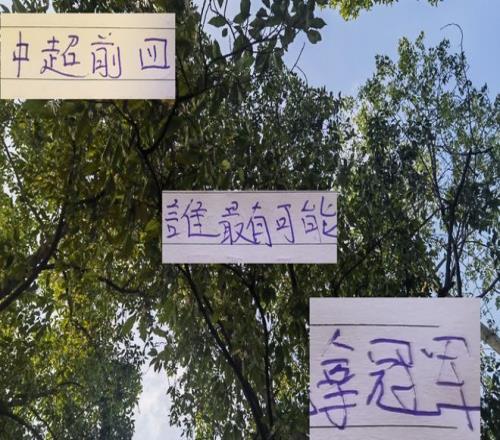 中超前四
誰最有可能
拿冠军